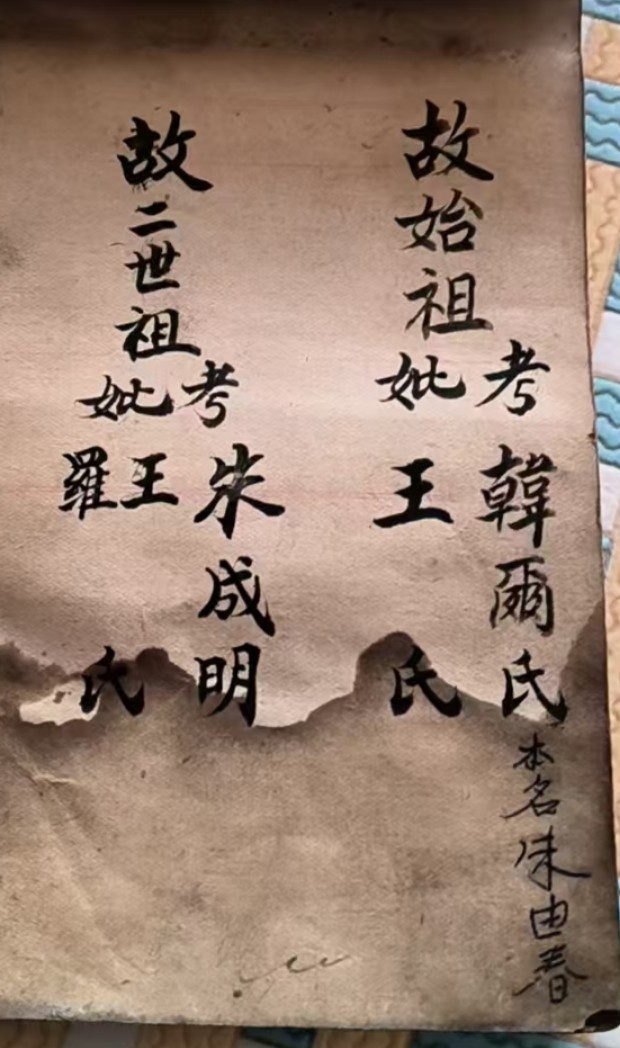 故始祖
考韓爾氏
本名朱由春
妣王氏
故二世祖
考朱成明
妣王羅氏